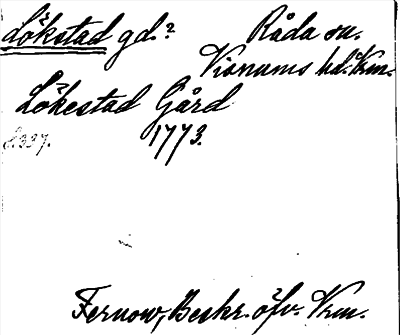 Lökstad gd.? Råda sn.
Visnums hd. Vrm.
Lökestad Gård
s. 337. 1773.
Fernow, Beskr. öfv. Vrm.